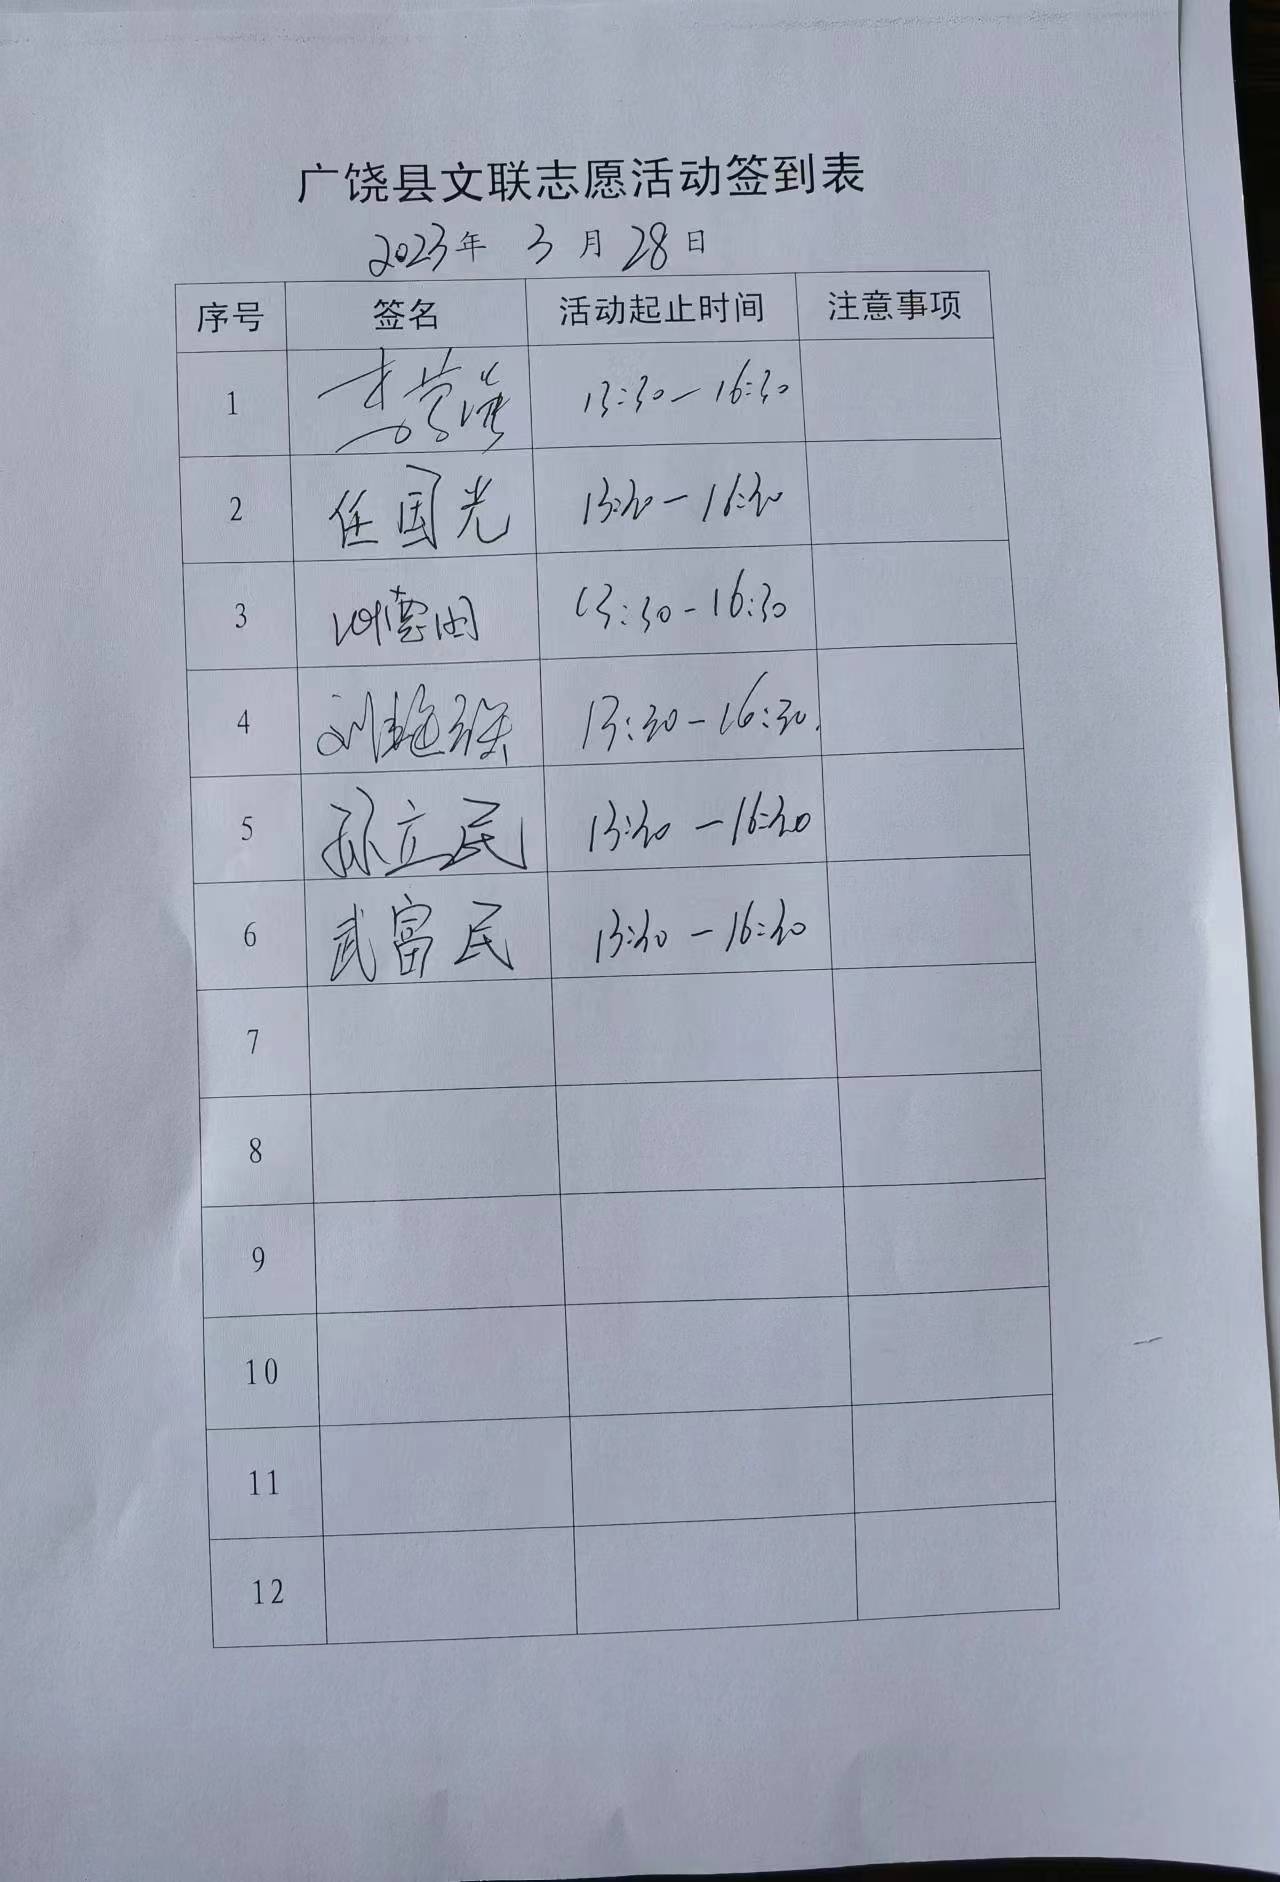 广饶县文联志愿活动签到表
2023年 3月28日
序号 签名 活动起止时间 注意事项
1 李 13:30—16:30
2 任国光 13:30—16:30
3 13:30-16:30
4 刘艳 13:30-16:30.
5 孙立民 13:30—16:30
6 武富民 13:30—16:30
7
8
9
10
11
12